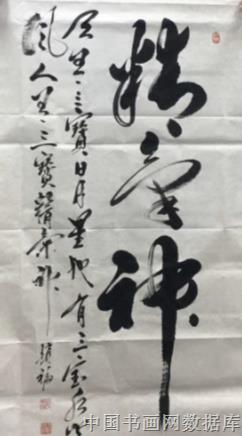 精气神
天有三宝日月星地有三宝水火
风人有三宝精气神
中国书画网数据库